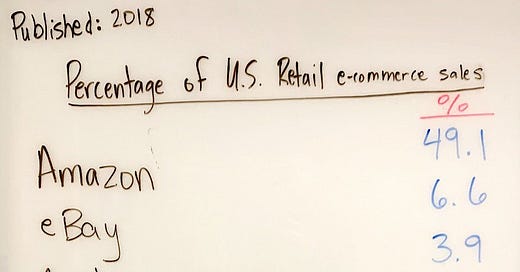 Published: 2018
Percentage of U.S. Retail e-commerce sales
%
Amazon 49.1
eBay 6.6
3.9